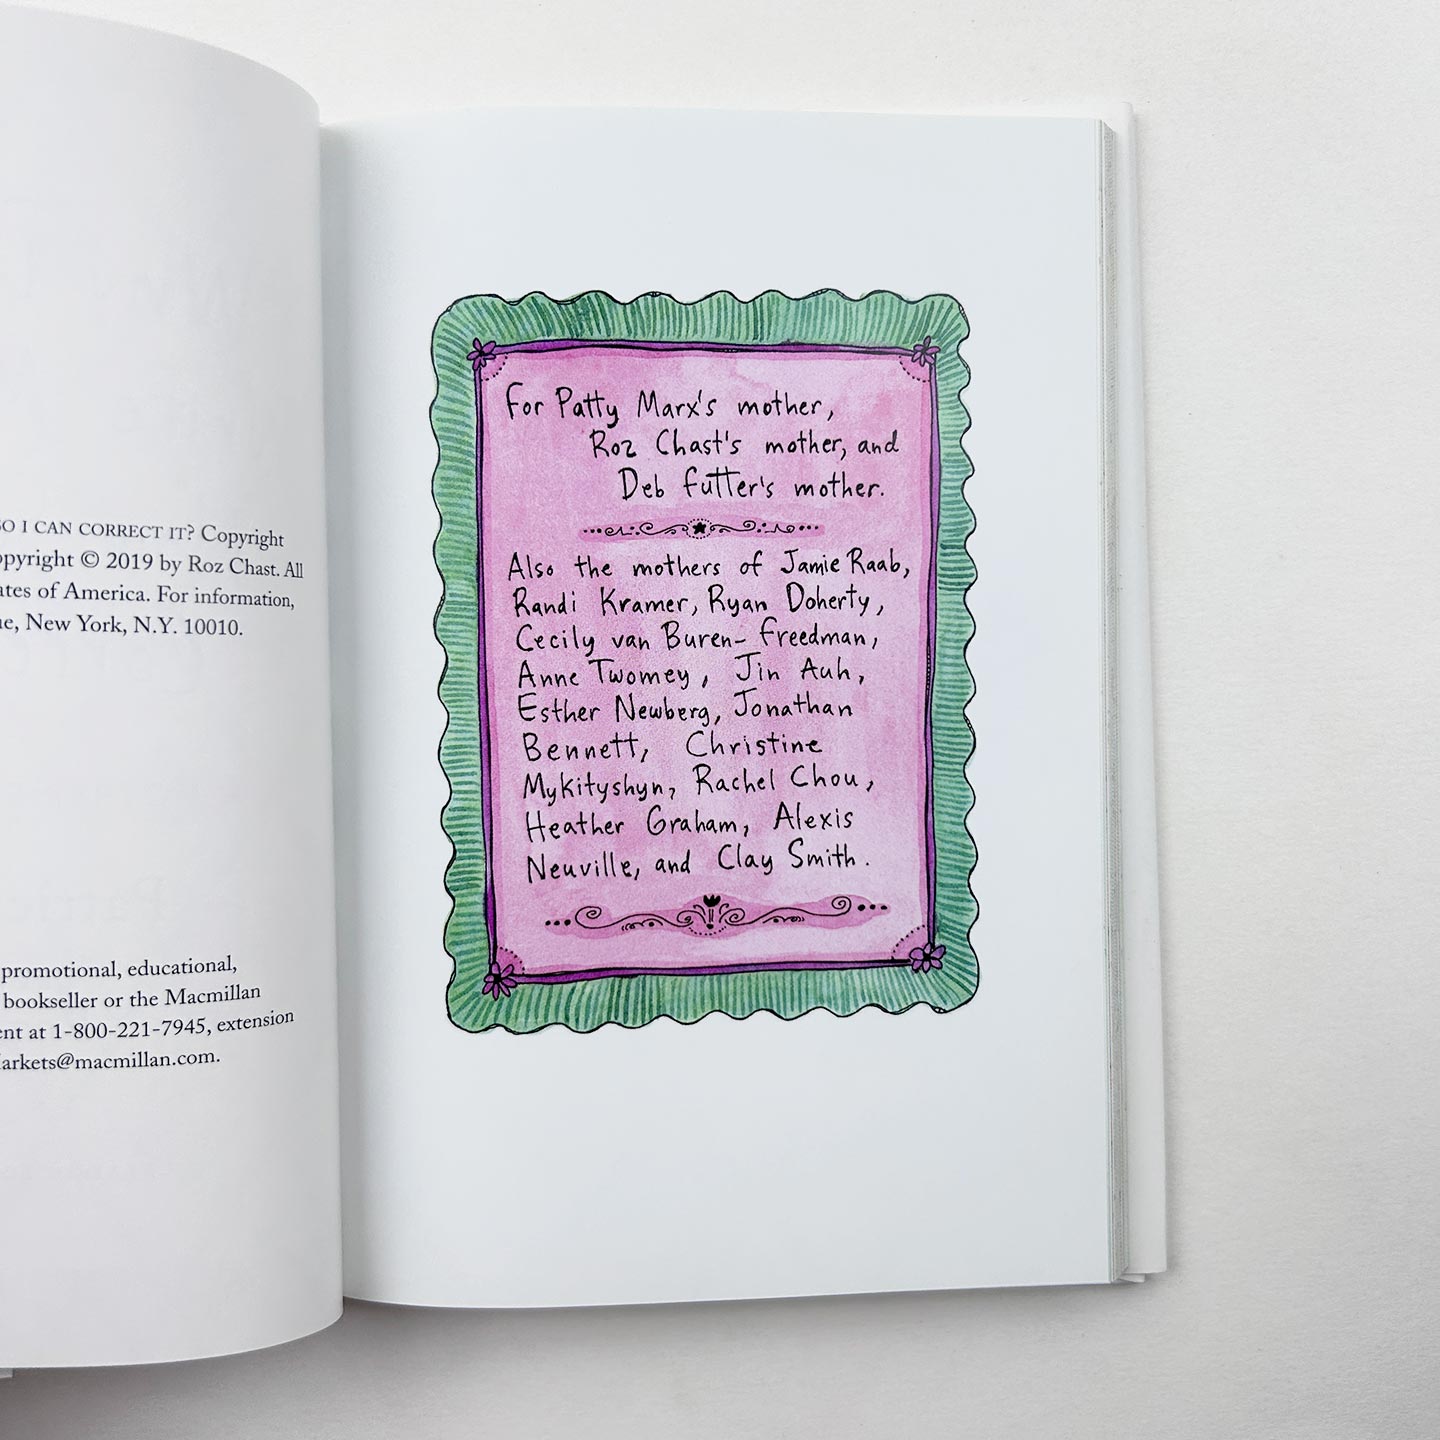 SO I CAN CORRECT IT? Copyright
opyright © 2019 by Roz Chast. All
ates of America. For information,
ue, New York, N.Y. 10010.
promotional, educational,
bookseller or the Macmillan
ent at 1-800-221-7945, extension
arkets@macmillan.com.
For Patty Marx's mother,
Roz Chast's mother, and
Deb Futter's mother.
Also the mothers of Jamie Raab,
Randi Kramer, Ryan Doherty,
Cecily van Buren-Freedman,
Anne Twomey, Jin Auh,
Esther Newberg, Jonathan
Bennett, Christine
Mykityshyn, Rachel Chou,
Heather Graham, Alexis
Neuville, and Clay Smith.